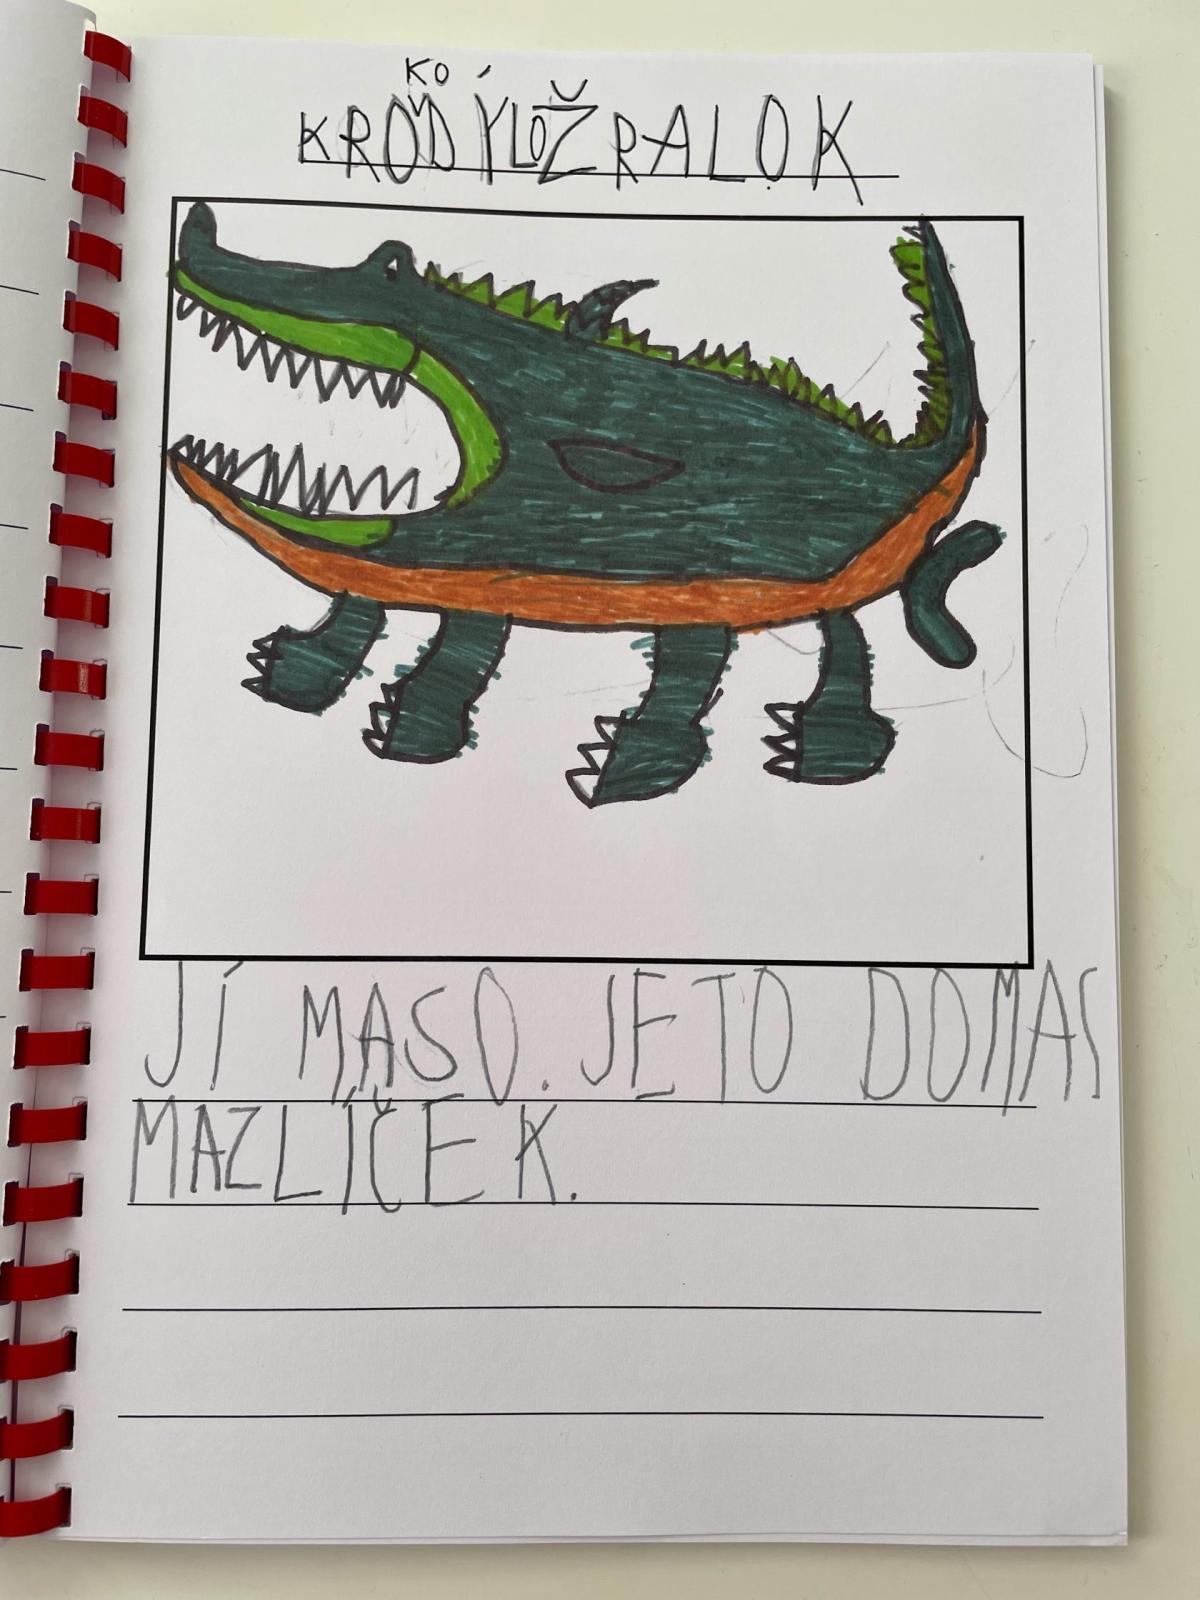 KO
KRODÝLOŽRALOK
JÍ MASO. JETO DOMAS
MAZLÍČEK.